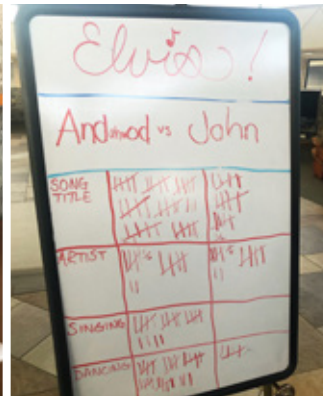 Elvis!
vs John
SONG
TITLE
ARTIST
SINGING
DANCING